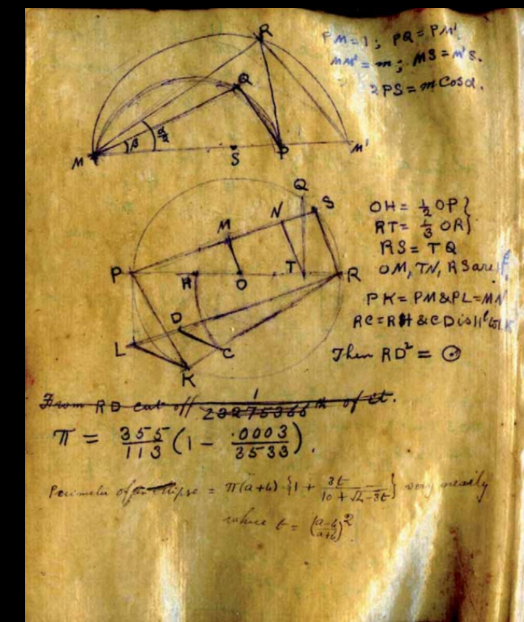 PM=1; PQ=PM'
MM'=m; MS=M'S.
2PS=m Cosα.
R
Q
M
β
α/2
S
P
M'
Q
S
N
M
P
H
O
T
R
D
L
C
K
OH = 1/2 OP}
RT = 1/3 OR}
RS = TQ
OM, TN, RS are ||l
PK=PM & PL=MN
RC=RH & CD is ||l to LK
Then RD² = ⊙
From RD cut off 1/23275366 th of it.
π = 355/113 (1 - .0003/3533).
Perimeter of an ellipse = π(a+b) {1 + 3t/(10 + √4-3t)} very nearly
where t = ((a-b)/(a+b))²